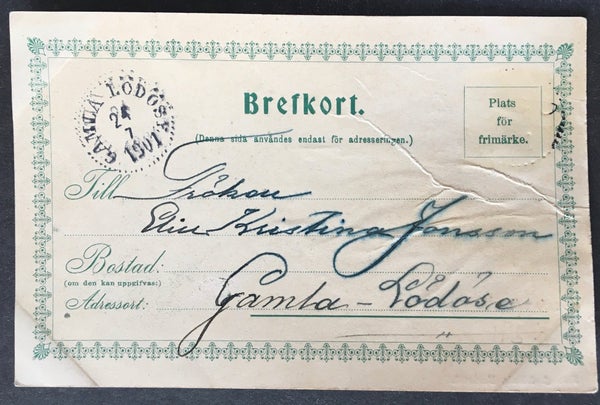 GAMLA LÖDÖSE
24
7
1901
Brefkort.
(Denna sida användes endast för adresseringen.)
Plats
för
frimärke.
Till Fröken
Elin Kristina Jonsson
Bostad:
(om den kan uppgifvas:)
Adressort: Gamla-Lödöse